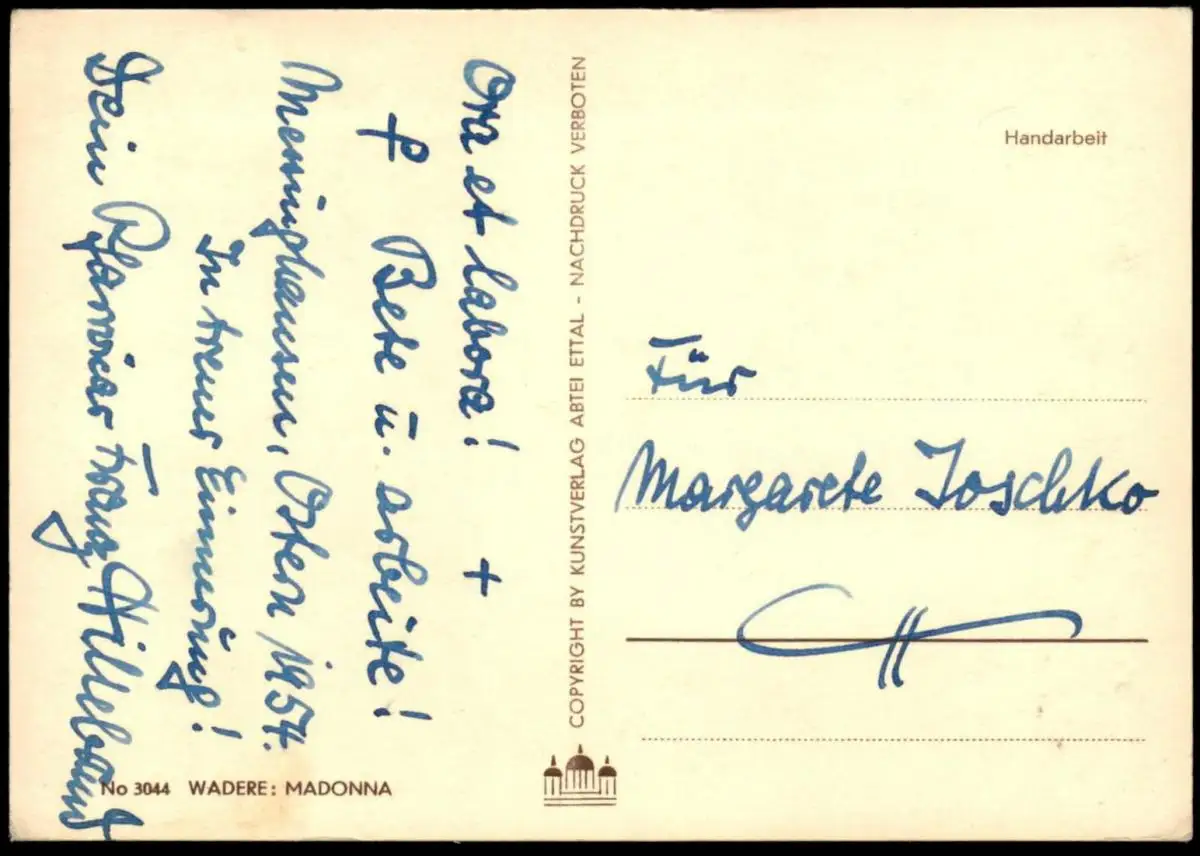 Ora et labora! +
Bete u. arbeite!
Messinghausen, Ostern 1954.
In treuer Erinnerung!
Dein Pfarrvikar Franz Hillebrand
No 3044 WADERE: MADONNA
COPYRIGHT BY KUNSTVERLAG ABTEI ETTAL - NACHDRUCK VERBOTEN
Handarbeit
Für
Margarete Joschko